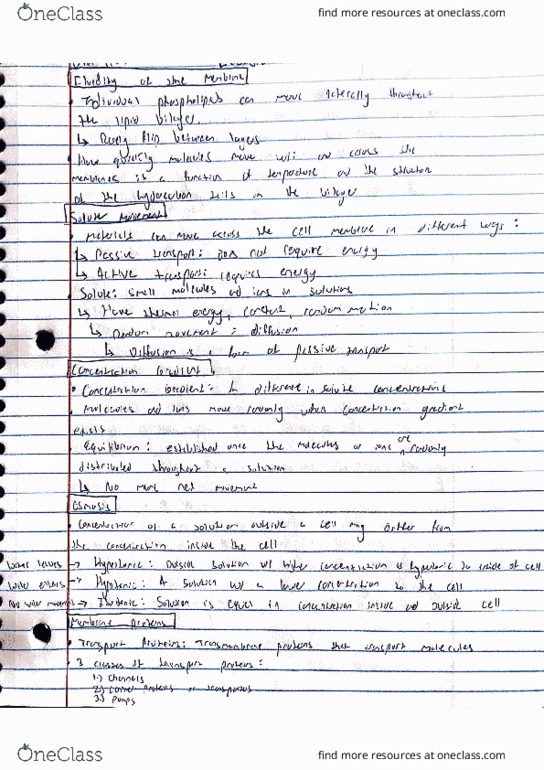 OneClass
find more resources at oneclass.com
Fluidity of the Membrane
Individual phospholipids can move laterally throughout
the lipid bilayer.
↳ Rarely flip between layers
How quickly molecules move within and across the
membranes is a function of temperature and the structure
of the hydrocarbon tails in the bilayer
Solute Movement
• Materials can move across the cell membrane in different ways:
↳ Passive transport: Does not require energy
↳ Active transport: requires energy
Solute: small molecules and ions in solutions
↳ Have thermal energy, constant, random motion
↳ Random movement: diffusion
↳ Diffusion is a form of passive transport
Concentration Gradient
• Concentration Gradient: difference in solute concentrations
Molecules and ions move randomly when concentration gradient
exists
Equilibrium: established once the molecules or ions are randomly
distributed throughout a solution
↳ No more net movement
Osmosis
Concentration of a solution outside a cell may differ from
the concentration inside the cell
Water leaves → Hypertonic: Outside solution w/ higher concentration is hypertonic to inside of cell
Water enters → Hypotonic: A solution w/ a lower concentration to the cell
No water moves → Isotonic: Solution is equal in concentration inside and outside cell
Membrane proteins
• Transport Proteins: Transmembrane proteins that transport molecules
• 3 classes of transport proteins:
1.) Channels
2.) Carrier proteins or transporters
3.) Pumps
OneClass
find more resources at oneclass.com